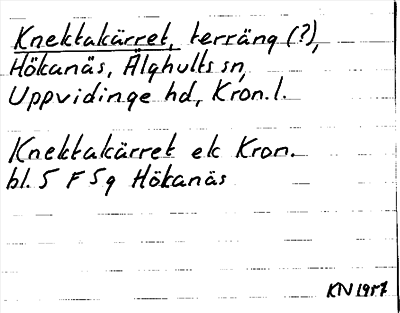 Knektakärret, terräng (?),
Hökanäs, Älghults sn,
Uppvidinge hd, Kron. l.
Knektakärret ek Kron.
bl. 5 F 5g Hökanäs
KN 1957